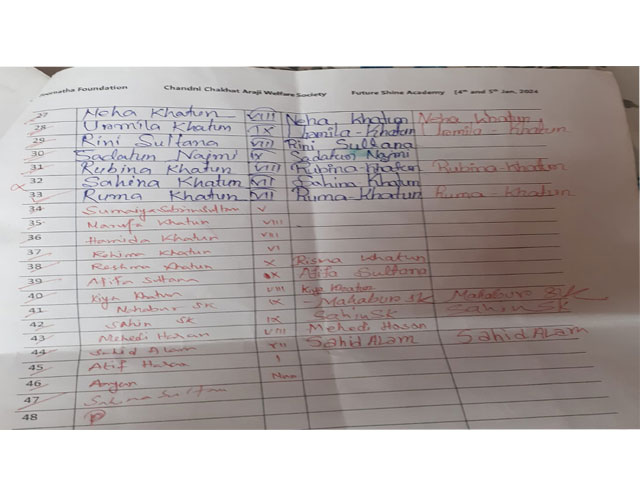 Foundation Chandni Chakhat Araji Welfare Society Future Shine Academy (4th and 5th Jan, 2024
27 Neha Khatun VIII Neha Khatun Neha Khatun
28 Urmila Khatun IX Urmila-Khatun Urmila-Khatun
29 Rini Sultana VIII Rini Sultana
30 Sadatun Najmi IX Sadatun Najmi
31 Rubina Khatun VIII Rubina-Khatun Rubina-Khatun
32 Sahina Khatun VII Sahina Khatun
33 Ruma Khatun VII Ruma-Khatun Ruma-Khatun
34 V
35 Khatun VIII
36 Hamida Khatun VIII
37 Khatun VI
38 Reshma Khatun X Risma Khatun
39 Atifa Sultana IX Atifa Sultana
40 Kiya Khatun VIII Kiya Khatun
41 Mahabur SK IX Mahabur SK Mahabur SK
42 Sahin SK IX Sahin SK Sahin SK
43 Mehedi Hasan VIII Mehedi Hasan
44 Sahid Alam VII Sahid Alam Sahid Alam
45 Atif Hasan I
46
47 Sultana
48